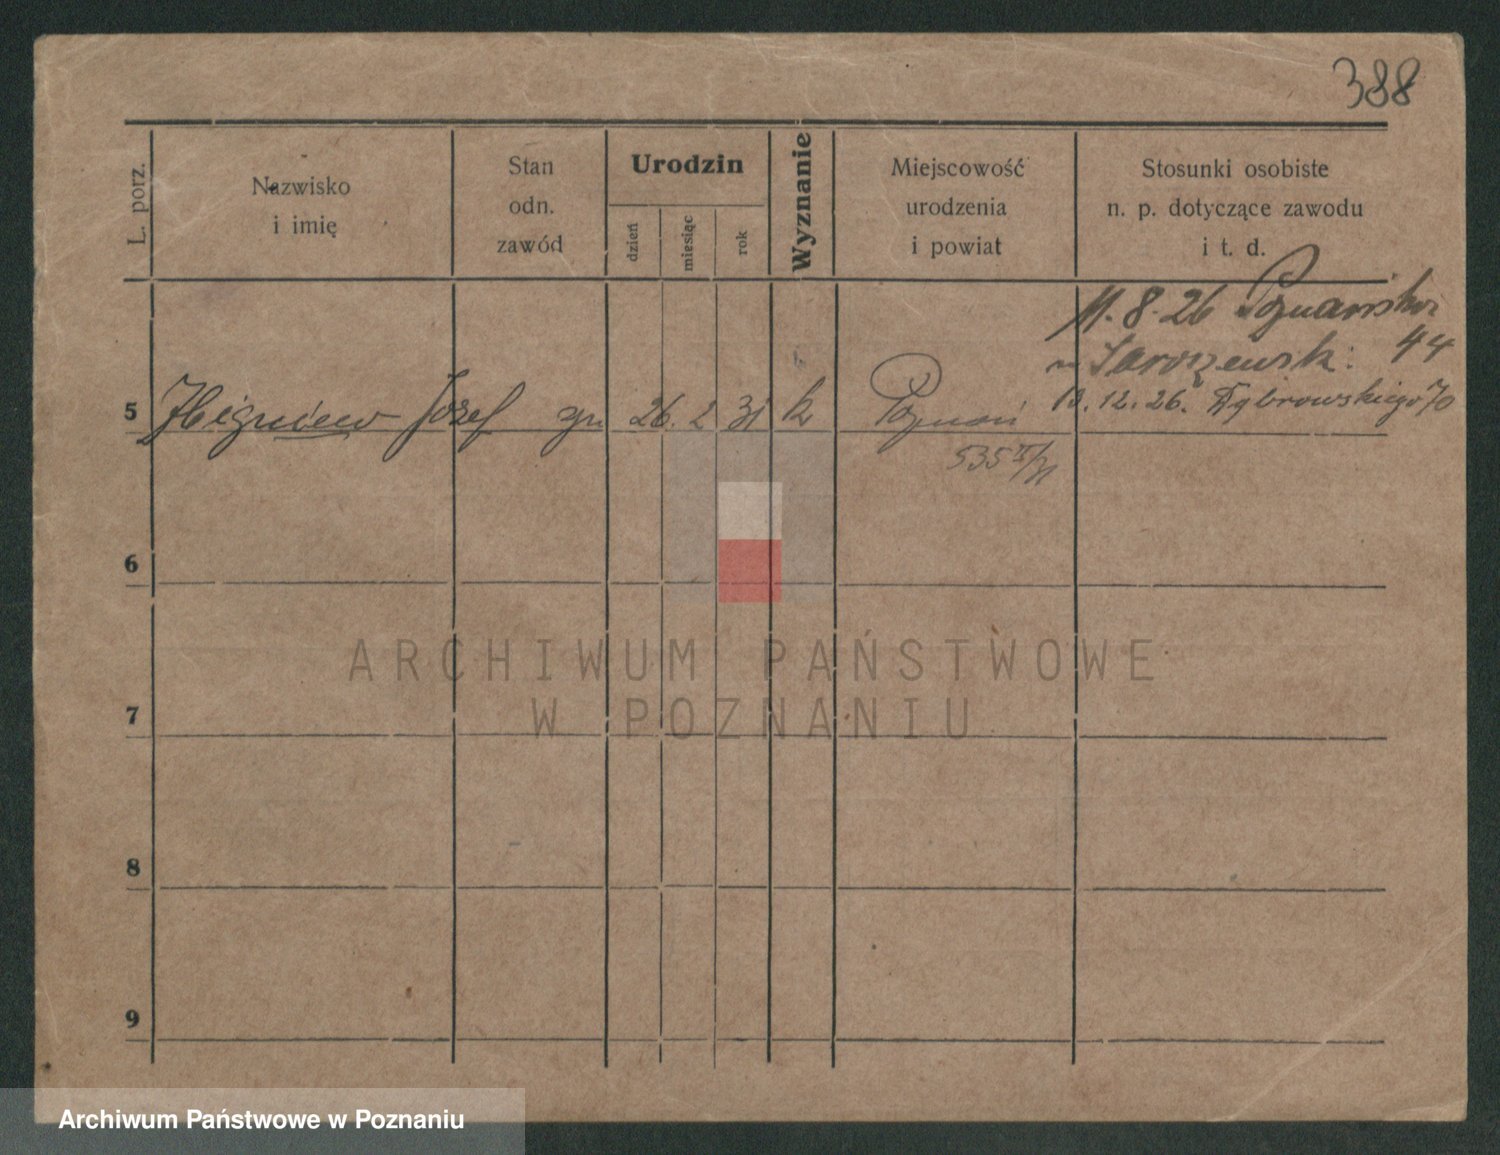 388
L. porz.
Nazwisko
i imię
Stan
odn.
zawód
Urodzin
dzień
miesiąc
rok
Wyznanie
Miejscowość
urodzenia
i powiat
Stosunki osobiste
n. p. dotyczące zawodu
i t. d.
11.8.26 Poznańska
44
5 Zbigniew Józef gn. 26. 2 31 k Poznań 13.12.26. Dąbrowskiego 70
535 II/31
6
7
8
9
ARCHIWUM PAŃSTWOWE
W POZNANIU
Archiwum Państwowe w Poznaniu